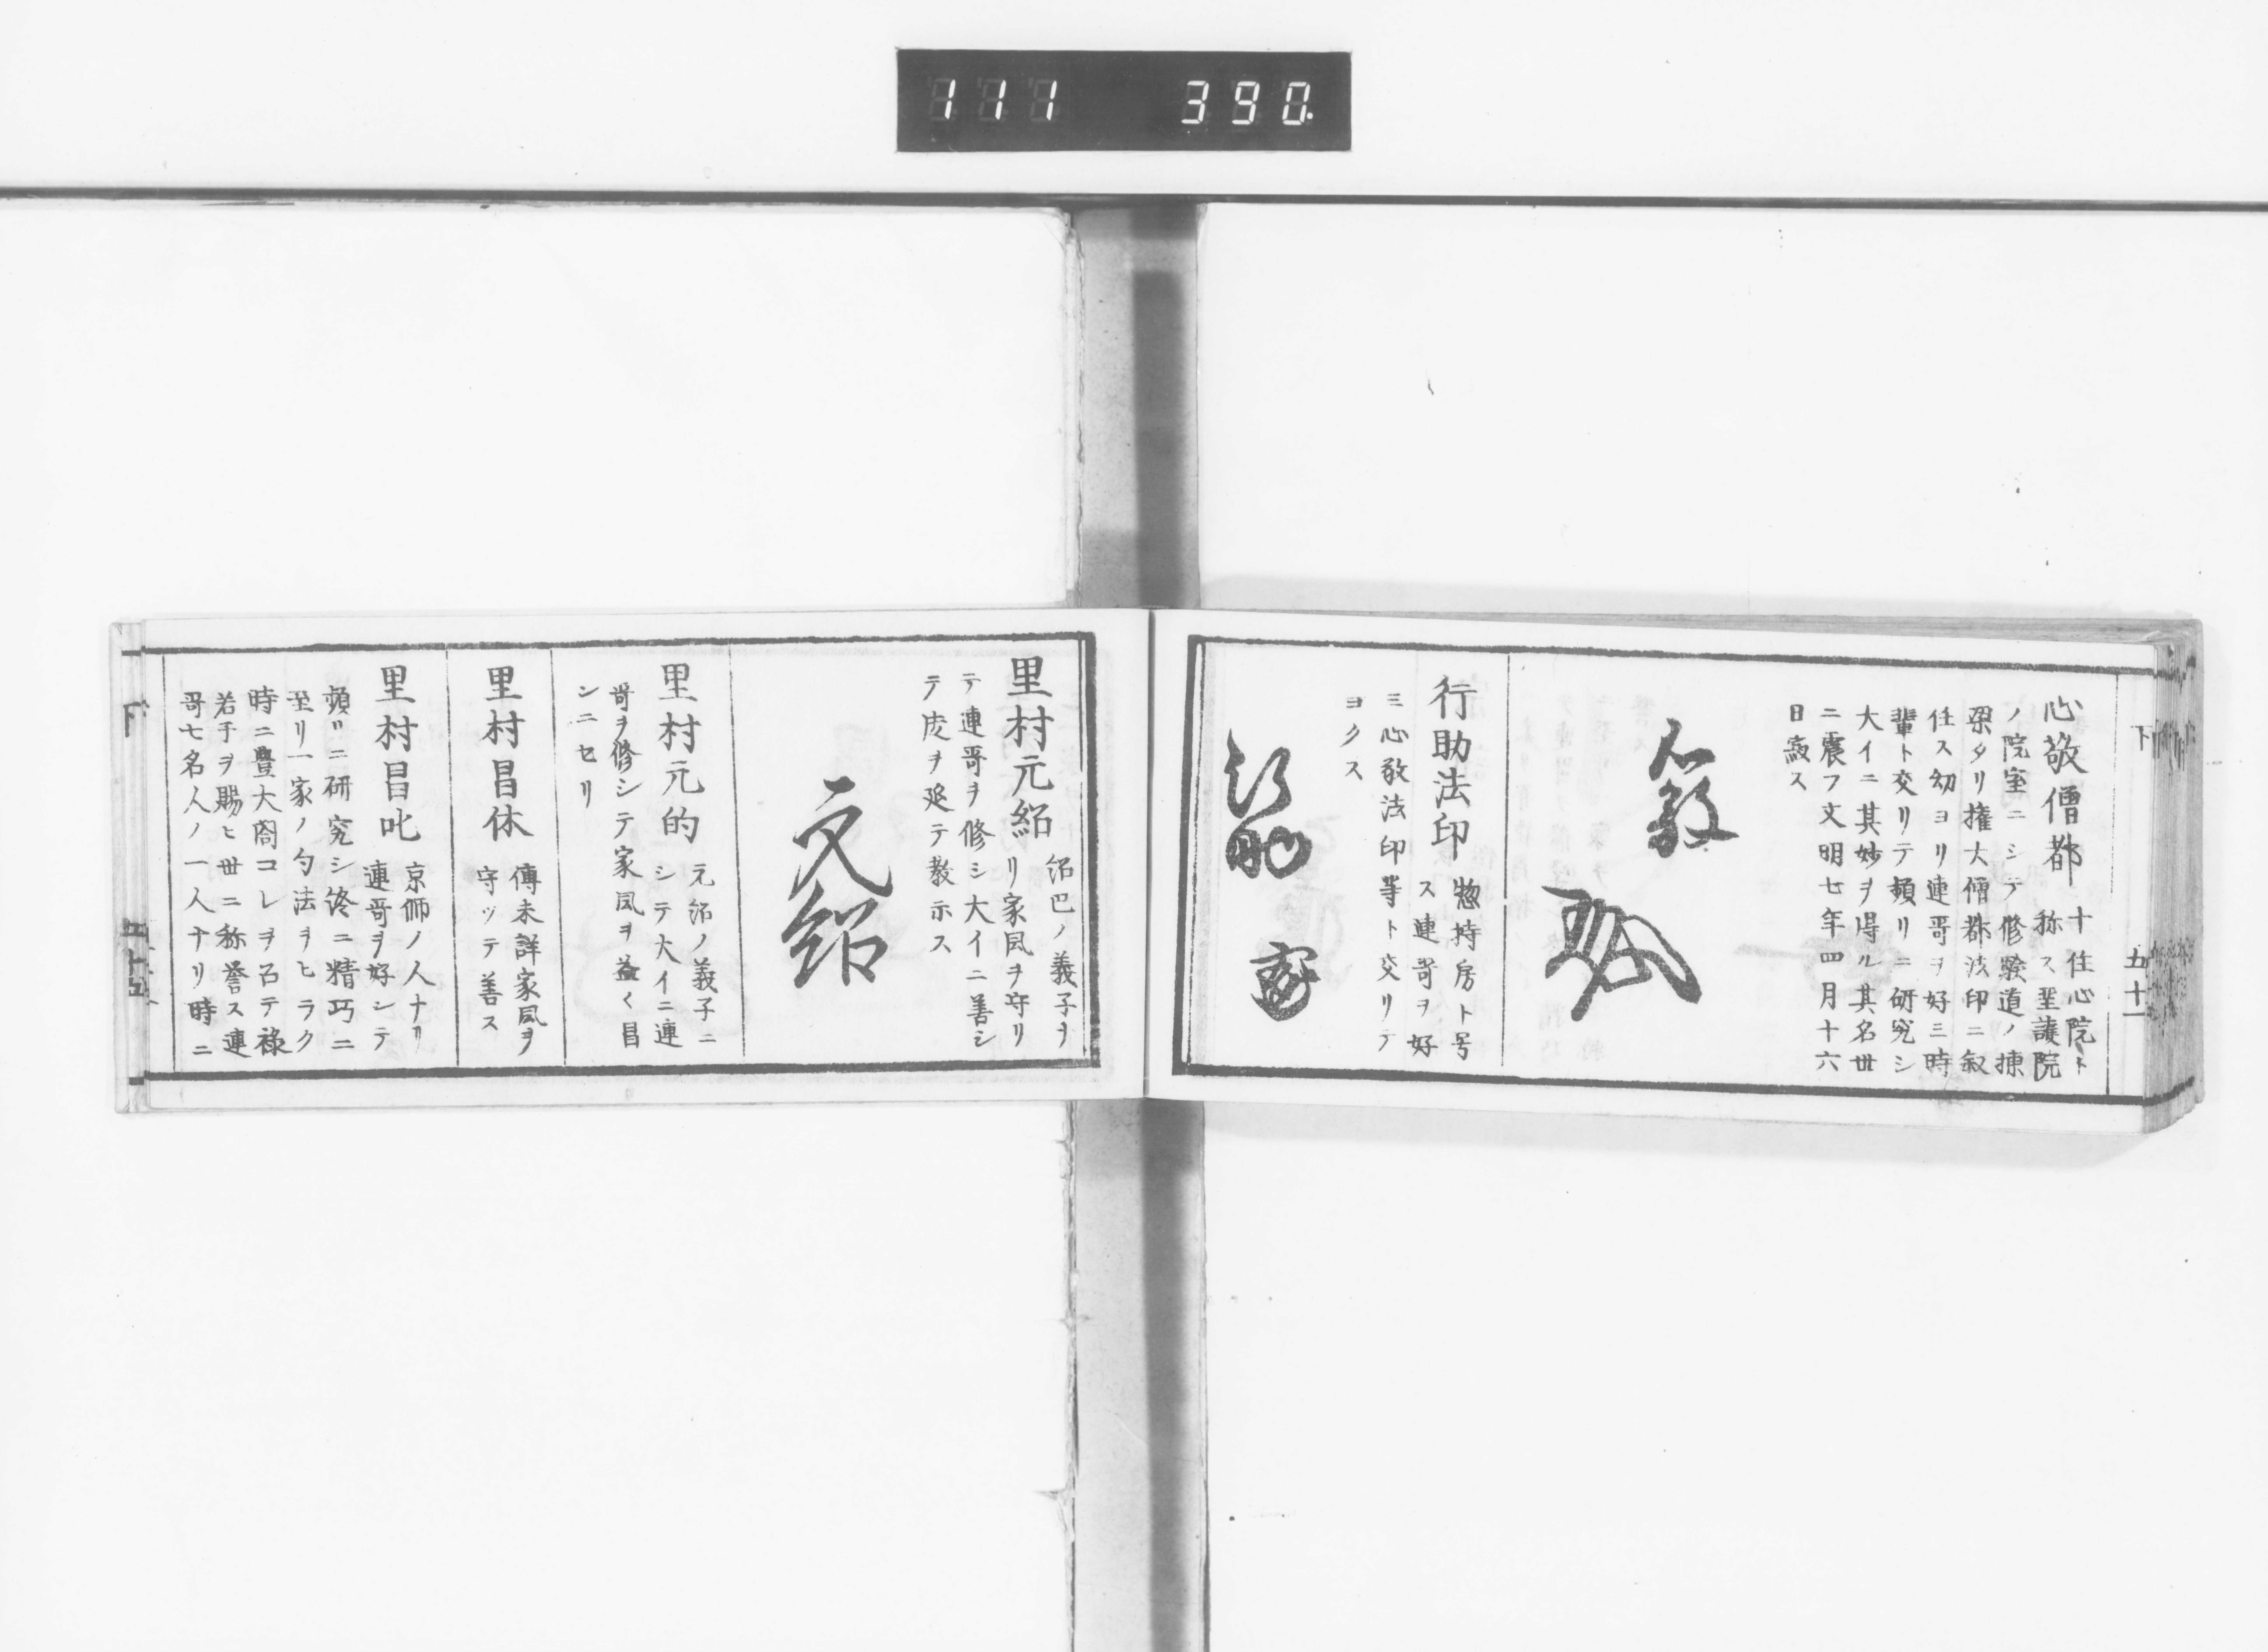 111 390
下
五十一
心敬僧都
十住心院ト
称ス聖護院
ノ院室ニシテ修験道ノ棟
梁タリ権大僧都法印ニ叙
任ス幼ヨリ連哥ヲ好ミ時
輩ト交リテ頻リニ研究シ
大イニ其妙ヲ得ル其名世
ニ震フ文明七年四月十六
日寂ス
心敬
行助法印
惣持房ト号
ス連哥ヲ好
ミ心敬法印等ト交リテ
ヨクス
行助
里村元紹
紹巴ノ義子ヲ
リ家風ヲ守リ
テ連哥ヲ修シ大イニ善シ
テ度ヲ延テ教示ス
元紹
里村元的
元紹ノ義子ニ
シテ大イニ連
哥ヲ修シテ家風ヲ益〱昌
シニセリ
里村昌休
傳未詳家風ヲ
守ッテ善ス
里村昌叱
京師ノ人ナリ
連哥ヲ好シテ
頻リニ研究シ終ニ精巧ニ
至リ一家ノ勺法ヲヒラク
時ニ豊大閤コレヲ召テ禄
若干ヲ賜ヒ世ニ称誉ス連
哥七名人ノ一人ナリ時ニ
下